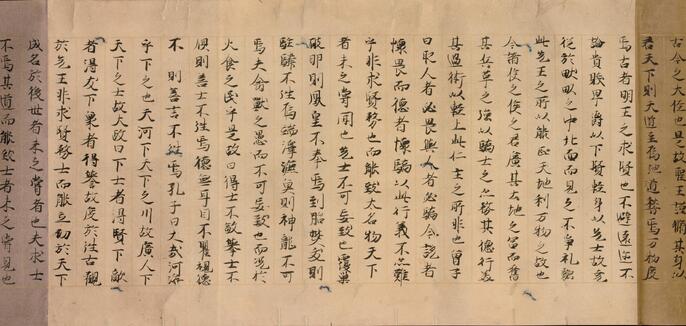 古今之大徑也是故聖王謹脩其身以
君天下則天道至焉地道稽焉万物度
焉古者明王之求賢也不避遠近不
論貴賤卑爵以下賢輕身以先士故堯
從於畎畝之中北面而見之不爭礼貌
此先王之所以能正天地利万物之故也
今諸侯之君廣其土地之富而奮
其兵革之强以驕士士亦務其德行美
其道術以輕上此仁主之所非也曾子
曰取人者必畏與人者必驕今說者
懷畏而聽者懷驕以此行義不亦難
乎非求賢務士而能致大名於天下
者未之嘗聞也夫士不可妄致也覆巢
破卵則鳳皇不至焉刳胎焚夭則
騏驎不往焉竭澤漉魚則神龍不下
焉夫禽獸之愚而不可妄致也而況於
火食之民乎是故曰待士不敬舉士不
信則善士不往焉聽言耳目不瞿視聽
不深則善言不往焉孔子曰大哉河海
乎下之也夫河下天下之川故廣人下
天下之士故大故曰下士者得賢下敵
者得友下衆者得譽故度於往古觀
於先王非求賢務士而能立功於天下
成名於後世者未之嘗有也夫求士
不遵其道而能致士者未之嘗見也